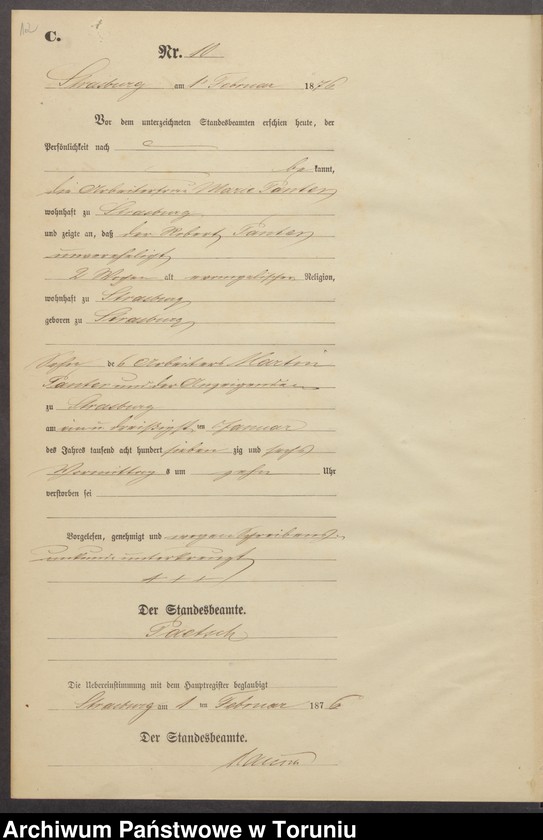 C.
Nr. 10
Strasburg am 1 Februar 1876
Vor dem unterzeichneten Standesbeamten erschien heute, der
Persönlichkeit nach
be kannt,
die Arbeiterfrau Marie Panter
wohnhaft zu Strasburg
und zeigte an, daß der Robert Panter
unvereheligt
2 Wochen alt evangelischer Religion,
wohnhaft zu Strasburg
geboren zu Strasburg
Sohn des Arbeiters Martin
Panter und der Anzeigenden
zu Strasburg
am ein u dreißigst en Januar
des Jahres tausend acht hundert sieben zig und sechs
Vormittag s um zehn Uhr
verstorben sei
Vorgelesen, genehmigt und wegen Schreibens
unkunde unterkreuzt
+ + +
Der Standesbeamte.
Paetsch
Die Uebereinstimmung mit dem Hauptregister beglaubigt
Strasburg am 1 ten Februar 1876
Der Standesbeamte.
Archiwum Państwowe w Toruniu